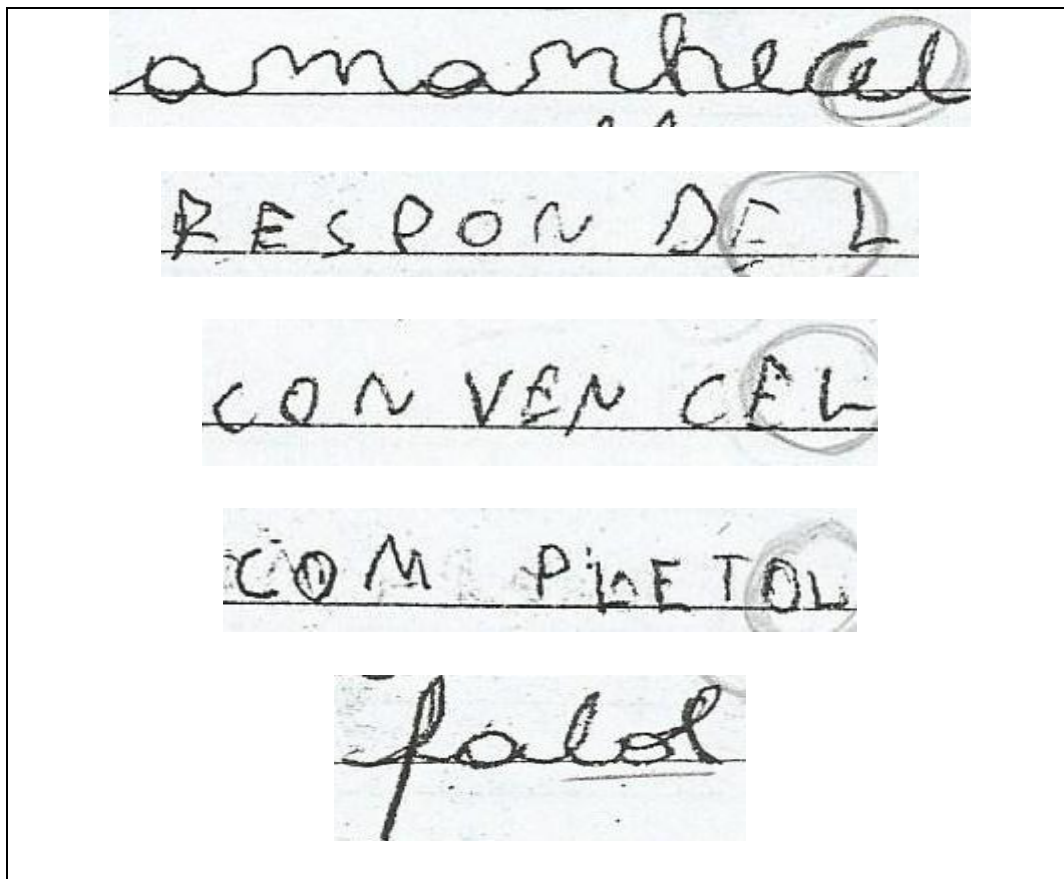 amanhecel
RESPON DEL
CON VEN CEL
COM PLETOL
falol